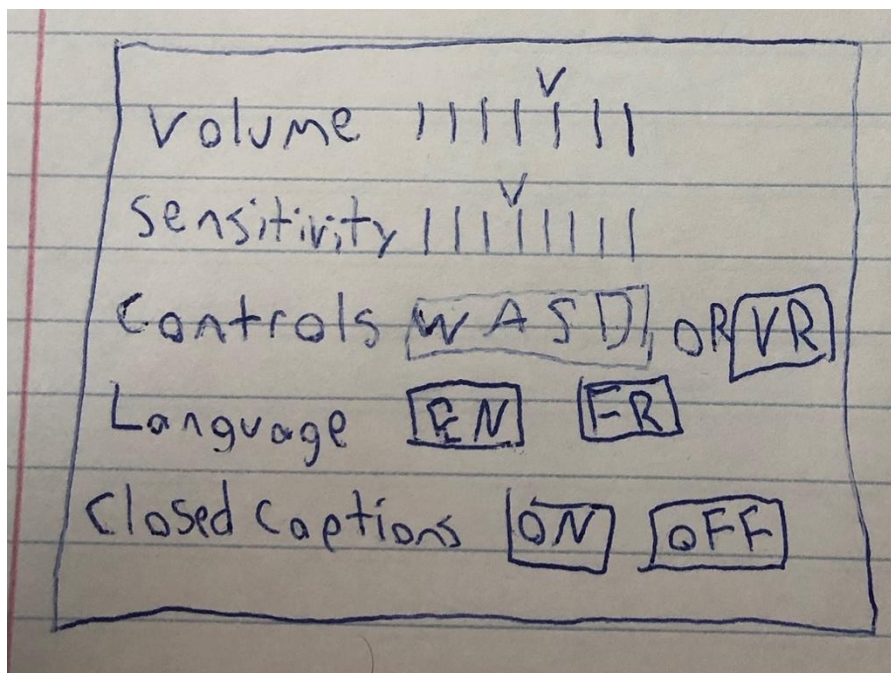 Volume
Sensitivity
Controls WASD OR VR
Language EN FR
Closed Captions ON OFF